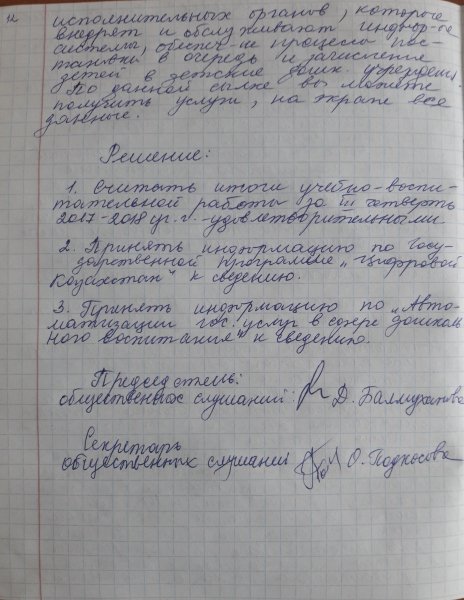 12 исполнительных органов, которые
внедрят и обслуживают информ-е
системы, обеспеч-ие процессы пос-
тановки в очередь и зачисление
детей в детские дошк. учрежден.
По данной сылке вы можете
получить услуги, на экране все
данные.
Решение:
1. Считать итоги учебно-воспи-
тательной работы за III четверть
2017-2018 уг. г. - удовлетворительными
2. Принять информацию по Госу-
дарственной программе „Цифровой
Казахстан" к сведению.
3. Принять информацию по „Авто-
матизации гос. услуг в сфере дошколь
ного воспитания" к сведению.
Председатель:
общественных слушаний: Д. Балмуханова
Секретарь
общественных слушаний О. Подносова